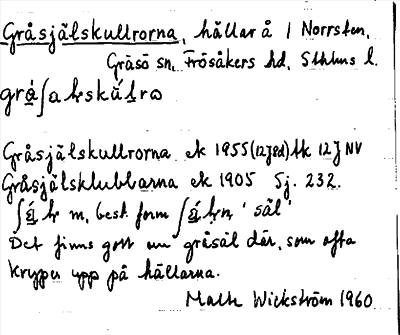 Gråsjälskullrorna, hällar å / Norrsten,
Gräsö sn, Frösåkers hd, Sthlms l.
Gråsjälskullrorna ek 1955 (12J8d) lk 12J NV
Gråsjälsklubbarna ek 1905 Sj. 232.
m, best form 'säl'
Det finns gott om gråsäl där, som ofta
kryper upp på hällarna.
Math Wickström 1960